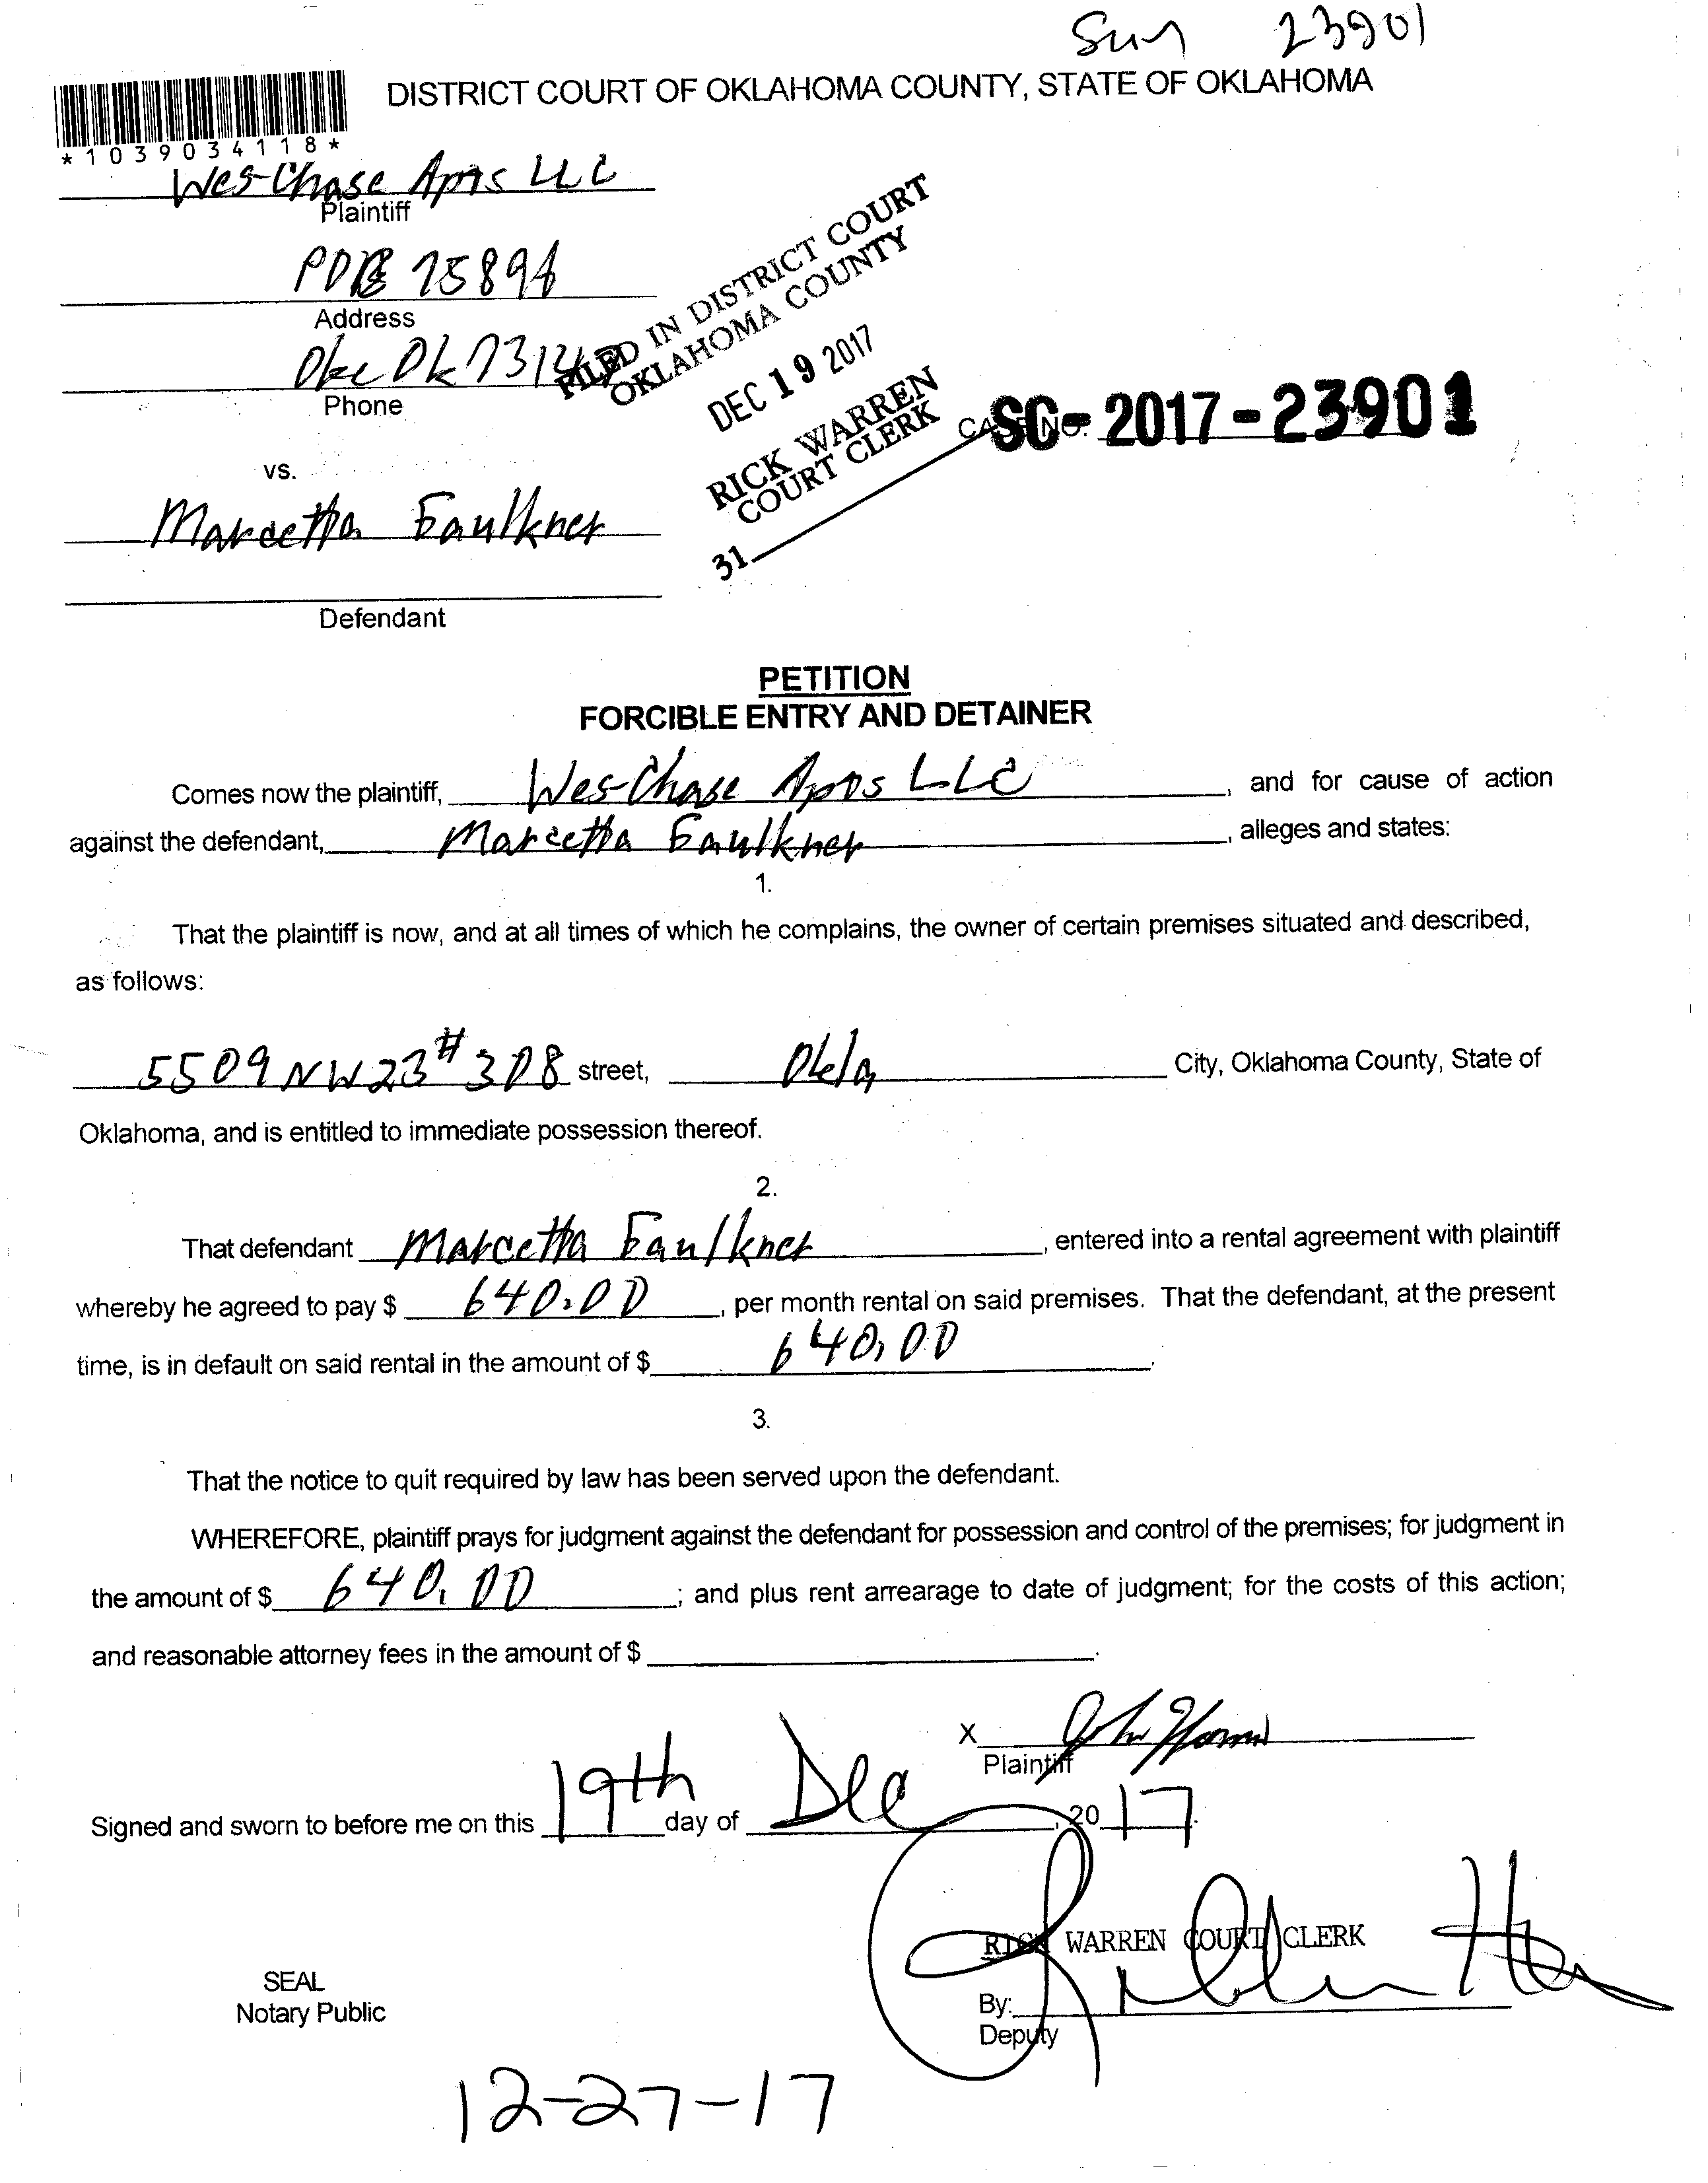 23901
DISTRICT COURT OF OKLAHOMA COUNTY, STATE OF OKLAHOMA
*1039034118*
Wes-Chase Apts LLC
Plaintiff
POB 75894
Address
Okc Ok
Phone
FILED IN DISTRICT COURT
OKLAHOMA COUNTY
DEC 19 2017
RICK WARREN
COURT CLERK
31
CASE NO. SC-2017-23901
vs.
Marcetta Faulkner
Defendant
PETITION
FORCIBLE ENTRY AND DETAINER
Comes now the plaintiff, Wes-Chase Apts LLC, and for cause of action
against the defendant, Marcetta Faulkner, alleges and states:
1.
That the plaintiff is now, and at all times of which he complains, the owner of certain premises situated and described,
as follows:
5509 NW 23 # 308 street, Okla City, Oklahoma County, State of
Oklahoma, and is entitled to immediate possession thereof.
2.
That defendant Marcetta Faulkner, entered into a rental agreement with plaintiff
whereby he agreed to pay $ 640.00, per month rental on said premises. That the defendant, at the present
time, is in default on said rental in the amount of $ 640.00.
3.
That the notice to quit required by law has been served upon the defendant.
WHEREFORE, plaintiff prays for judgment against the defendant for possession and control of the premises; for judgment in
the amount of $ 640.00; and plus rent arrearage to date of judgment; for the costs of this action;
and reasonable attorney fees in the amount of $ .
X John
Plaintiff
Signed and sworn to before me on this 19th day of Dec, 2017.
RICK WARREN COURT CLERK
SEAL
Notary Public
By:
Deputy
12-27-17